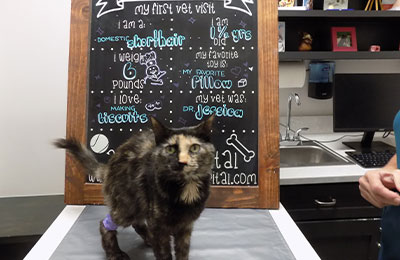 my first vet visit
I am a:
DOMESTIC shorthair
I am
1 ½ yrs
old
I weigh
6
pounds
my favorite
toy is:
MY FAVORITE
Pillow
I love:
MAKING
biscuits
my vet was:
DR. Jessica
tal
ital.com